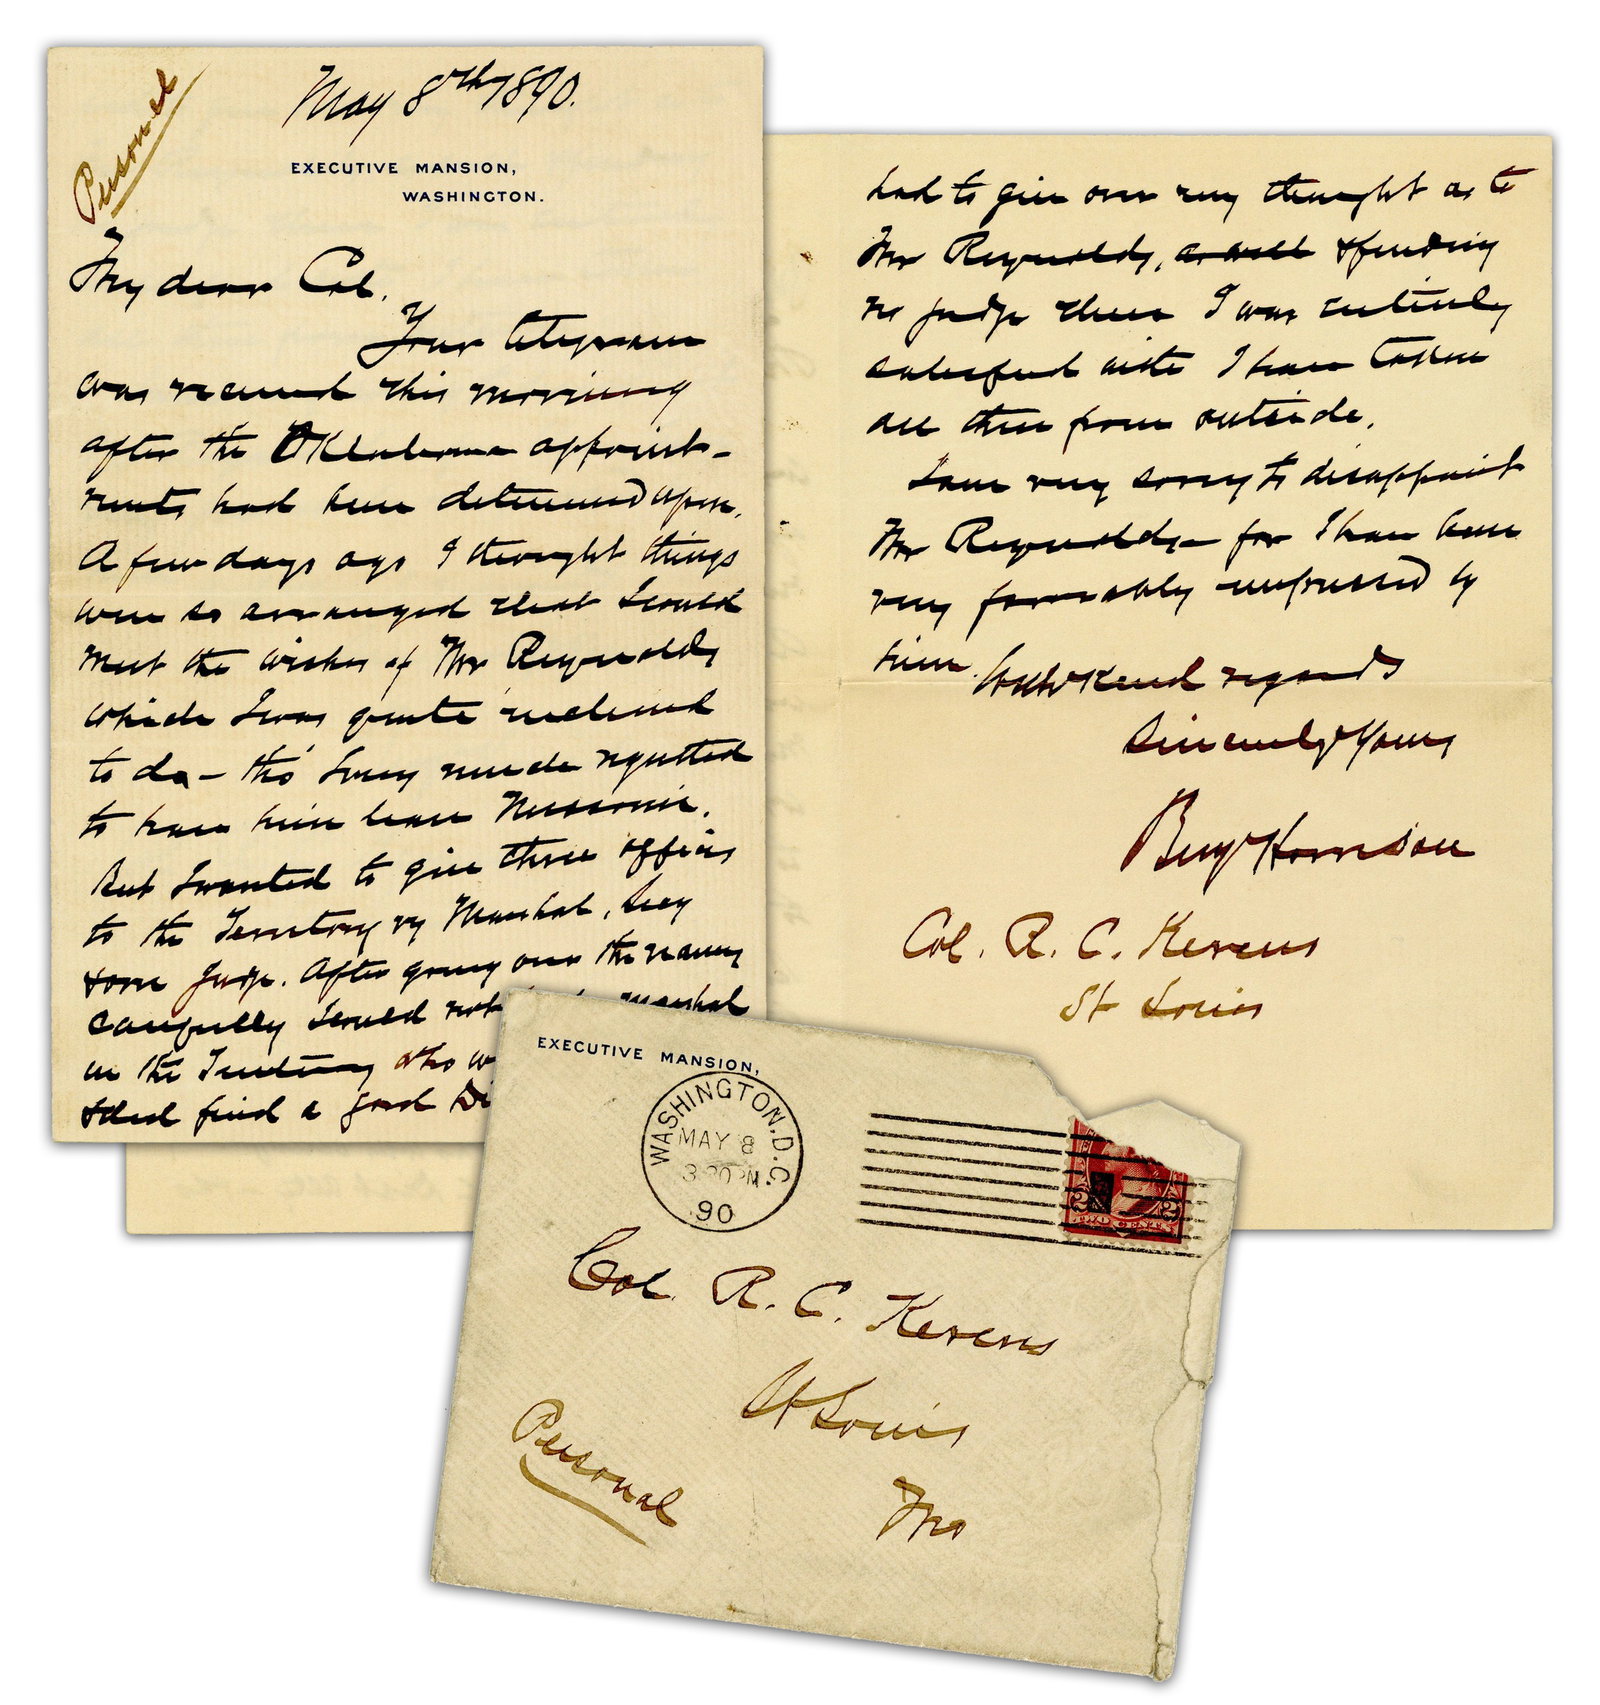 Personal
May 8th 1890.
EXECUTIVE MANSION,
WASHINGTON.
My dear Col.
Your telegram
was received this morning
after the Oklahoma appoint-
ments had been determined upon.
A few days ago I thought things
were so arranged that I could
meet the wishes of Mr Reynolds
which I was quite inclined
to do – tho' I very much regretted
to have him leave Missouri.
But I wanted to give three offices
to the Territory vy Marshal, Secy
& one Judge. After going over the names
carefully I could not marshal
in the Territory who w
& did find a good Di
had to give over my thought as to
Mr Reynolds, as well & finding
no judge there I was entirely
satisfied with I have taken
all three from outside.
I am very sorry to disappoint
Mr Reynolds – for I have been
very favorably impressed by
him. With kind regards
Sincerely Yours
Benj Harrison
Col. R. C. Kerens
St Louis
EXECUTIVE MANSION,
WASHINGTON, D.C.
MAY 8
3 30 PM
90
2 2
Col. R. C. Kerens
St Louis
Mo
Personal